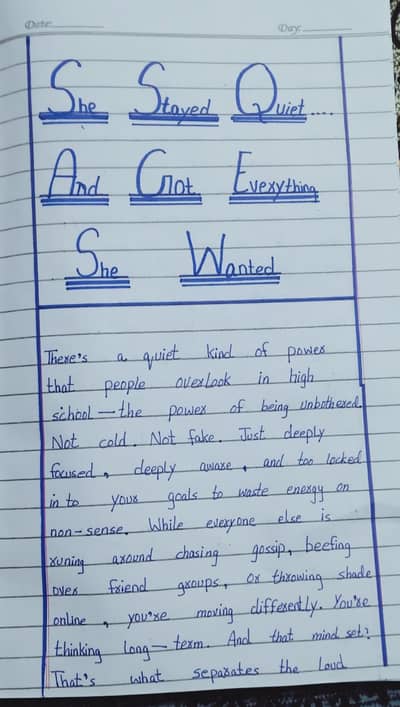 Date:
Day:
She Stayed Quiet....
And Got Everything
She Wanted
There's a quiet kind of power
that people overlook in high
school — the power of being unbothered.
Not cold. Not fake. Just deeply
focused, deeply aware, and too locked
in to your goals to waste energy on
non-sense. While everyone else is
runing around chasing gossip, beefing
over friend groups, or throwing shade
online, you're moving differently. You're
thinking long — term. And that mind set?
That's what separates the loud